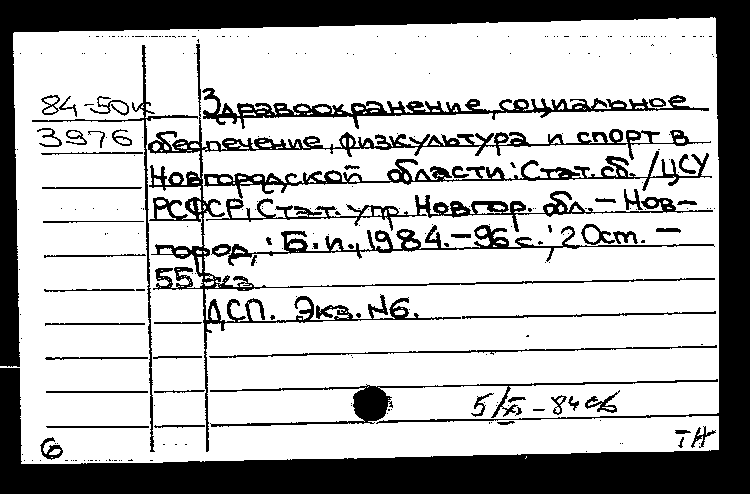 84-50к Здравоохранение, социальное
3976 обеспечение, физкультура и спорт в
Новгородской области: Стат. сб. / ЦСУ
РСФСР, Стат. упр. Новгор. обл. – Нов-
город, : Б. и., 1984. – 96 с. ; 20 см. –
55 экз.
ДСП. Экз. N6.
5/XI - 84
6 ТН